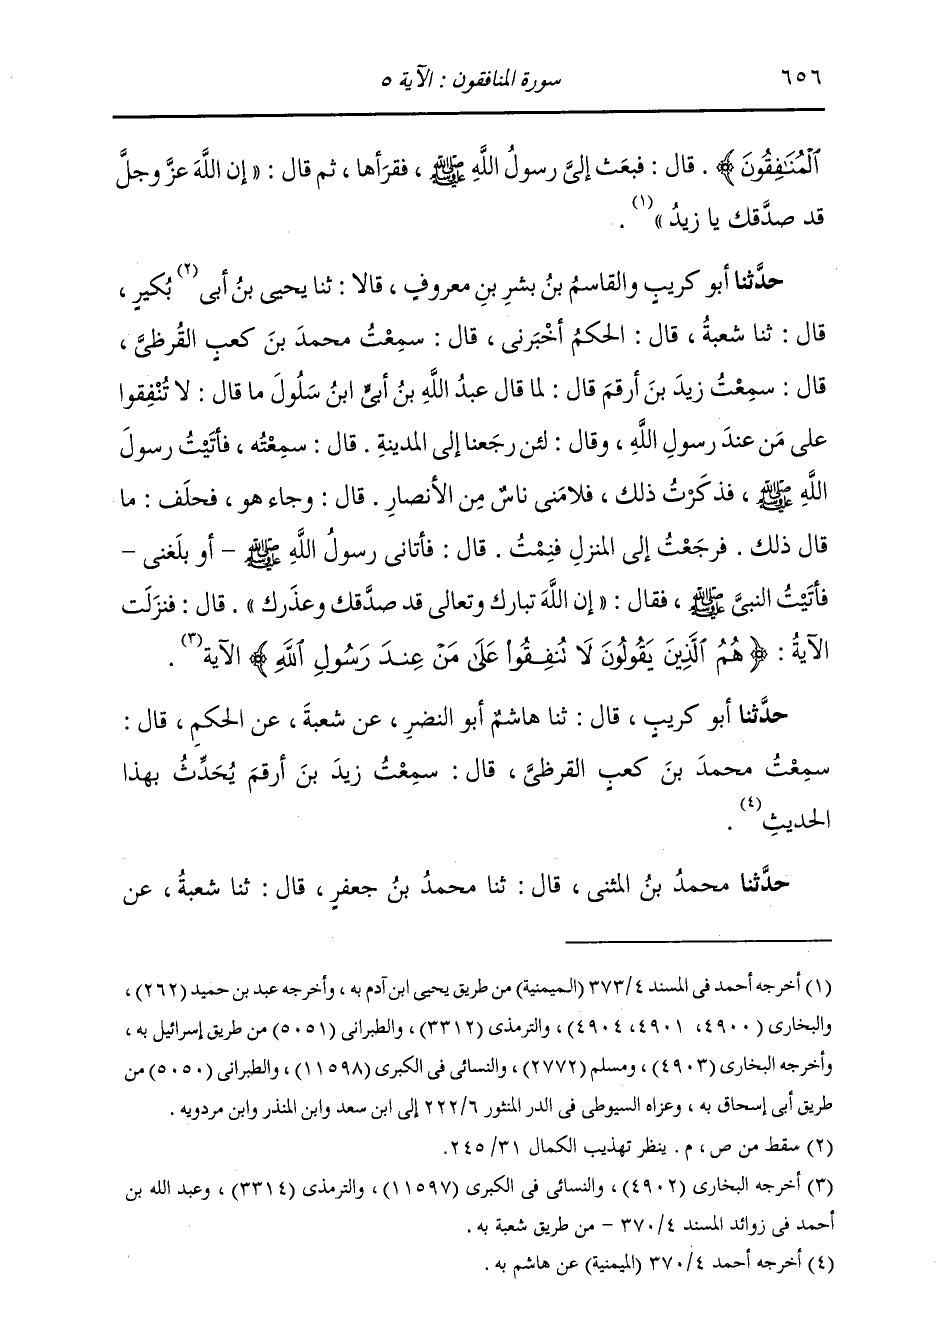 ٦٥٦ سورة المنافقون : الآية ٥
ٱلْمُنَٰفِقُونَ ﴾ . قال : فبعَث إلىَّ رسولُ اللَّهِ ﷺ ، فقرَأها ، ثم قال : « إن اللَّهَ عزَّ وجلَّ
قد صدَّقك يا زيدُ »(١) .
حدَّثنا أبو كريبٍ والقاسمُ بنُ بشرِ بنِ معروفٍ ، قالا : ثنا يحيى بنُ أبى(٢) بُكيرٍ ،
قال : ثنا شعبةُ ، قال : الحكمُ أخْبَرنى ، قال : سمِعْتُ محمدَ بنَ كعبٍ القُرظىَّ ،
قال : سمِعْتُ زيدَ بنَ أرقمَ قال : لما قال عبدُ اللَّهِ بنُ أبىٍّ ابنُ سَلُولَ ما قال : لا تُنْفِقوا
على مَن عندَ رسولِ اللَّهِ ، وقال : لئن رجَعنا إلى المدينةِ . قال : سمِعْتُه ، فأتَيْتُ رسولَ
اللَّهِ ﷺ ، فذكَرْتُ ذلك ، فلامَنى ناسٌ مِن الأنصارِ . قال : وجاء هو ، فحلَف : ما
قال ذلك . فرجَعْتُ إلى المنزلِ فنِمْتُ . قال : فأتانى رسولُ اللَّهِ ﷺ – أو بلَغنى –
فأتَيْتُ النبىَّ ﷺ ، فقال : « إن اللَّهَ تبارك وتعالى قد صدَّقك وعذَرك » . قال : فنزَلَت
الآيةُ : ﴿ هُمُ ٱلَّذِينَ يَقُولُونَ لَا نُنفِقُوا۟ عَلَىٰ مَنْ عِندَ رَسُولِ ٱللَّهِ ﴾ الآية(٣) .
حدَّثنا أبو كريبٍ ، قال : ثنا هاشمٌ أبو النضرِ ، عن شعبةَ ، عن الحكمِ ، قال :
سمِعْتُ محمدَ بنَ كعبٍ القرظىَّ ، قال : سمِعْتُ زيدَ بنَ أرقمَ يُحَدِّثُ بهذا
الحديثِ(٤) .
حدَّثنا محمدُ بنُ المثنى ، قال : ثنا محمدُ بنُ جعفرٍ ، قال : ثنا شعبةُ ، عن
(١) أخرجه أحمد فى المسند ٣٧٣/٤ (الميمنية) من طريق يحيى ابن آدم به ، وأخرجه عبد بن حميد (٢٦٢) ،
والبخارى (٤٩٠٠، ٤٩٠١، ٤٩٠٤) ، والترمذى (٣٣١٢) ، والطبرانى (٥٠٥١) من طريق إسرائيل به ،
وأخرجه البخارى (٤٩٠٣) ، ومسلم (٢٧٧٢) ، والنسائى فى الكبرى (١١٥٩٨) ، والطبرانى (٥٠٥٠) من
طريق أبى إسحاق به ، وعزاه السيوطى فى الدر المنثور ٢٢٢/٦ إلى ابن سعد وابن المنذر وابن مردويه .
(٢) سقط من ص ، م . ينظر تهذيب الكمال ٢٤٥/٣١ .
(٣) أخرجه البخارى (٤٩٠٢) ، والنسائى فى الكبرى (١١٥٩٧) ، والترمذى (٣٣١٤) ، وعبد الله بن
أحمد فى زوائد المسند ٣٧٠/٤ – من طريق شعبة به .
(٤) أخرجه أحمد ٣٧٠/٤ (الميمنية) عن هاشم به .